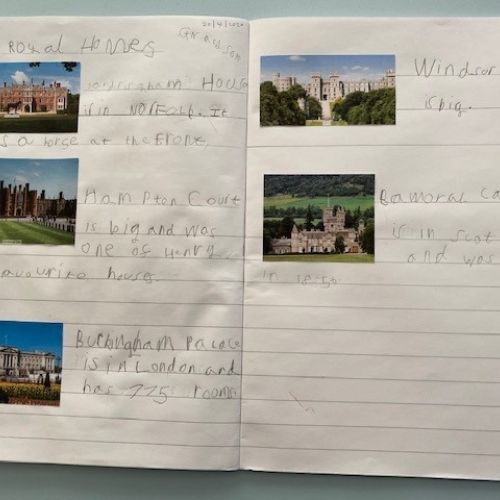 20/4/2020
Royal Homes
House
is in NORFOLK. It
s a horse at the front
Hampton Court
is big and was
one of Henry
avourite houses.
Buckingham Palace
is in London and
has 775 rooms
Windsor
is big.
Bamoral Ca
is in Scot
and was
in 18